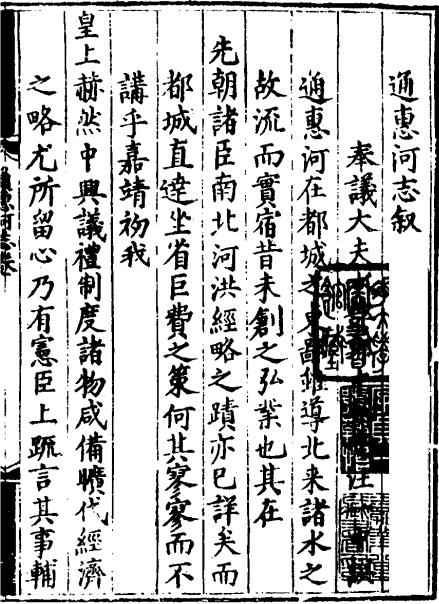 通惠河志叙
奉議大夫
通惠河在都城之東鄙雖導北来諸水之
故流而實宿昔未創之弘業也其在
先朝諸臣南北河洪經略之蹟亦已詳矣而
都城直達坐省巨費之策何其寥寥而不
講乎嘉靖初我
皇上赫然中興議禮制度諸物咸備曠代經濟
之略尤所留心乃有憲臣上疏言其事輔